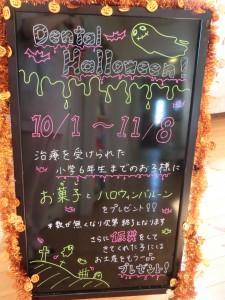 Dental
Halloween!
10/1 ～ 11/8
治療を受けられた
小学6年生までのお子様に
お菓子とハロウィンバルーン
をプレゼント!!
*数が無くなり次第終了となります
さらに仮装をして
きてくれた子には
お土産をもう一品
プレゼント!